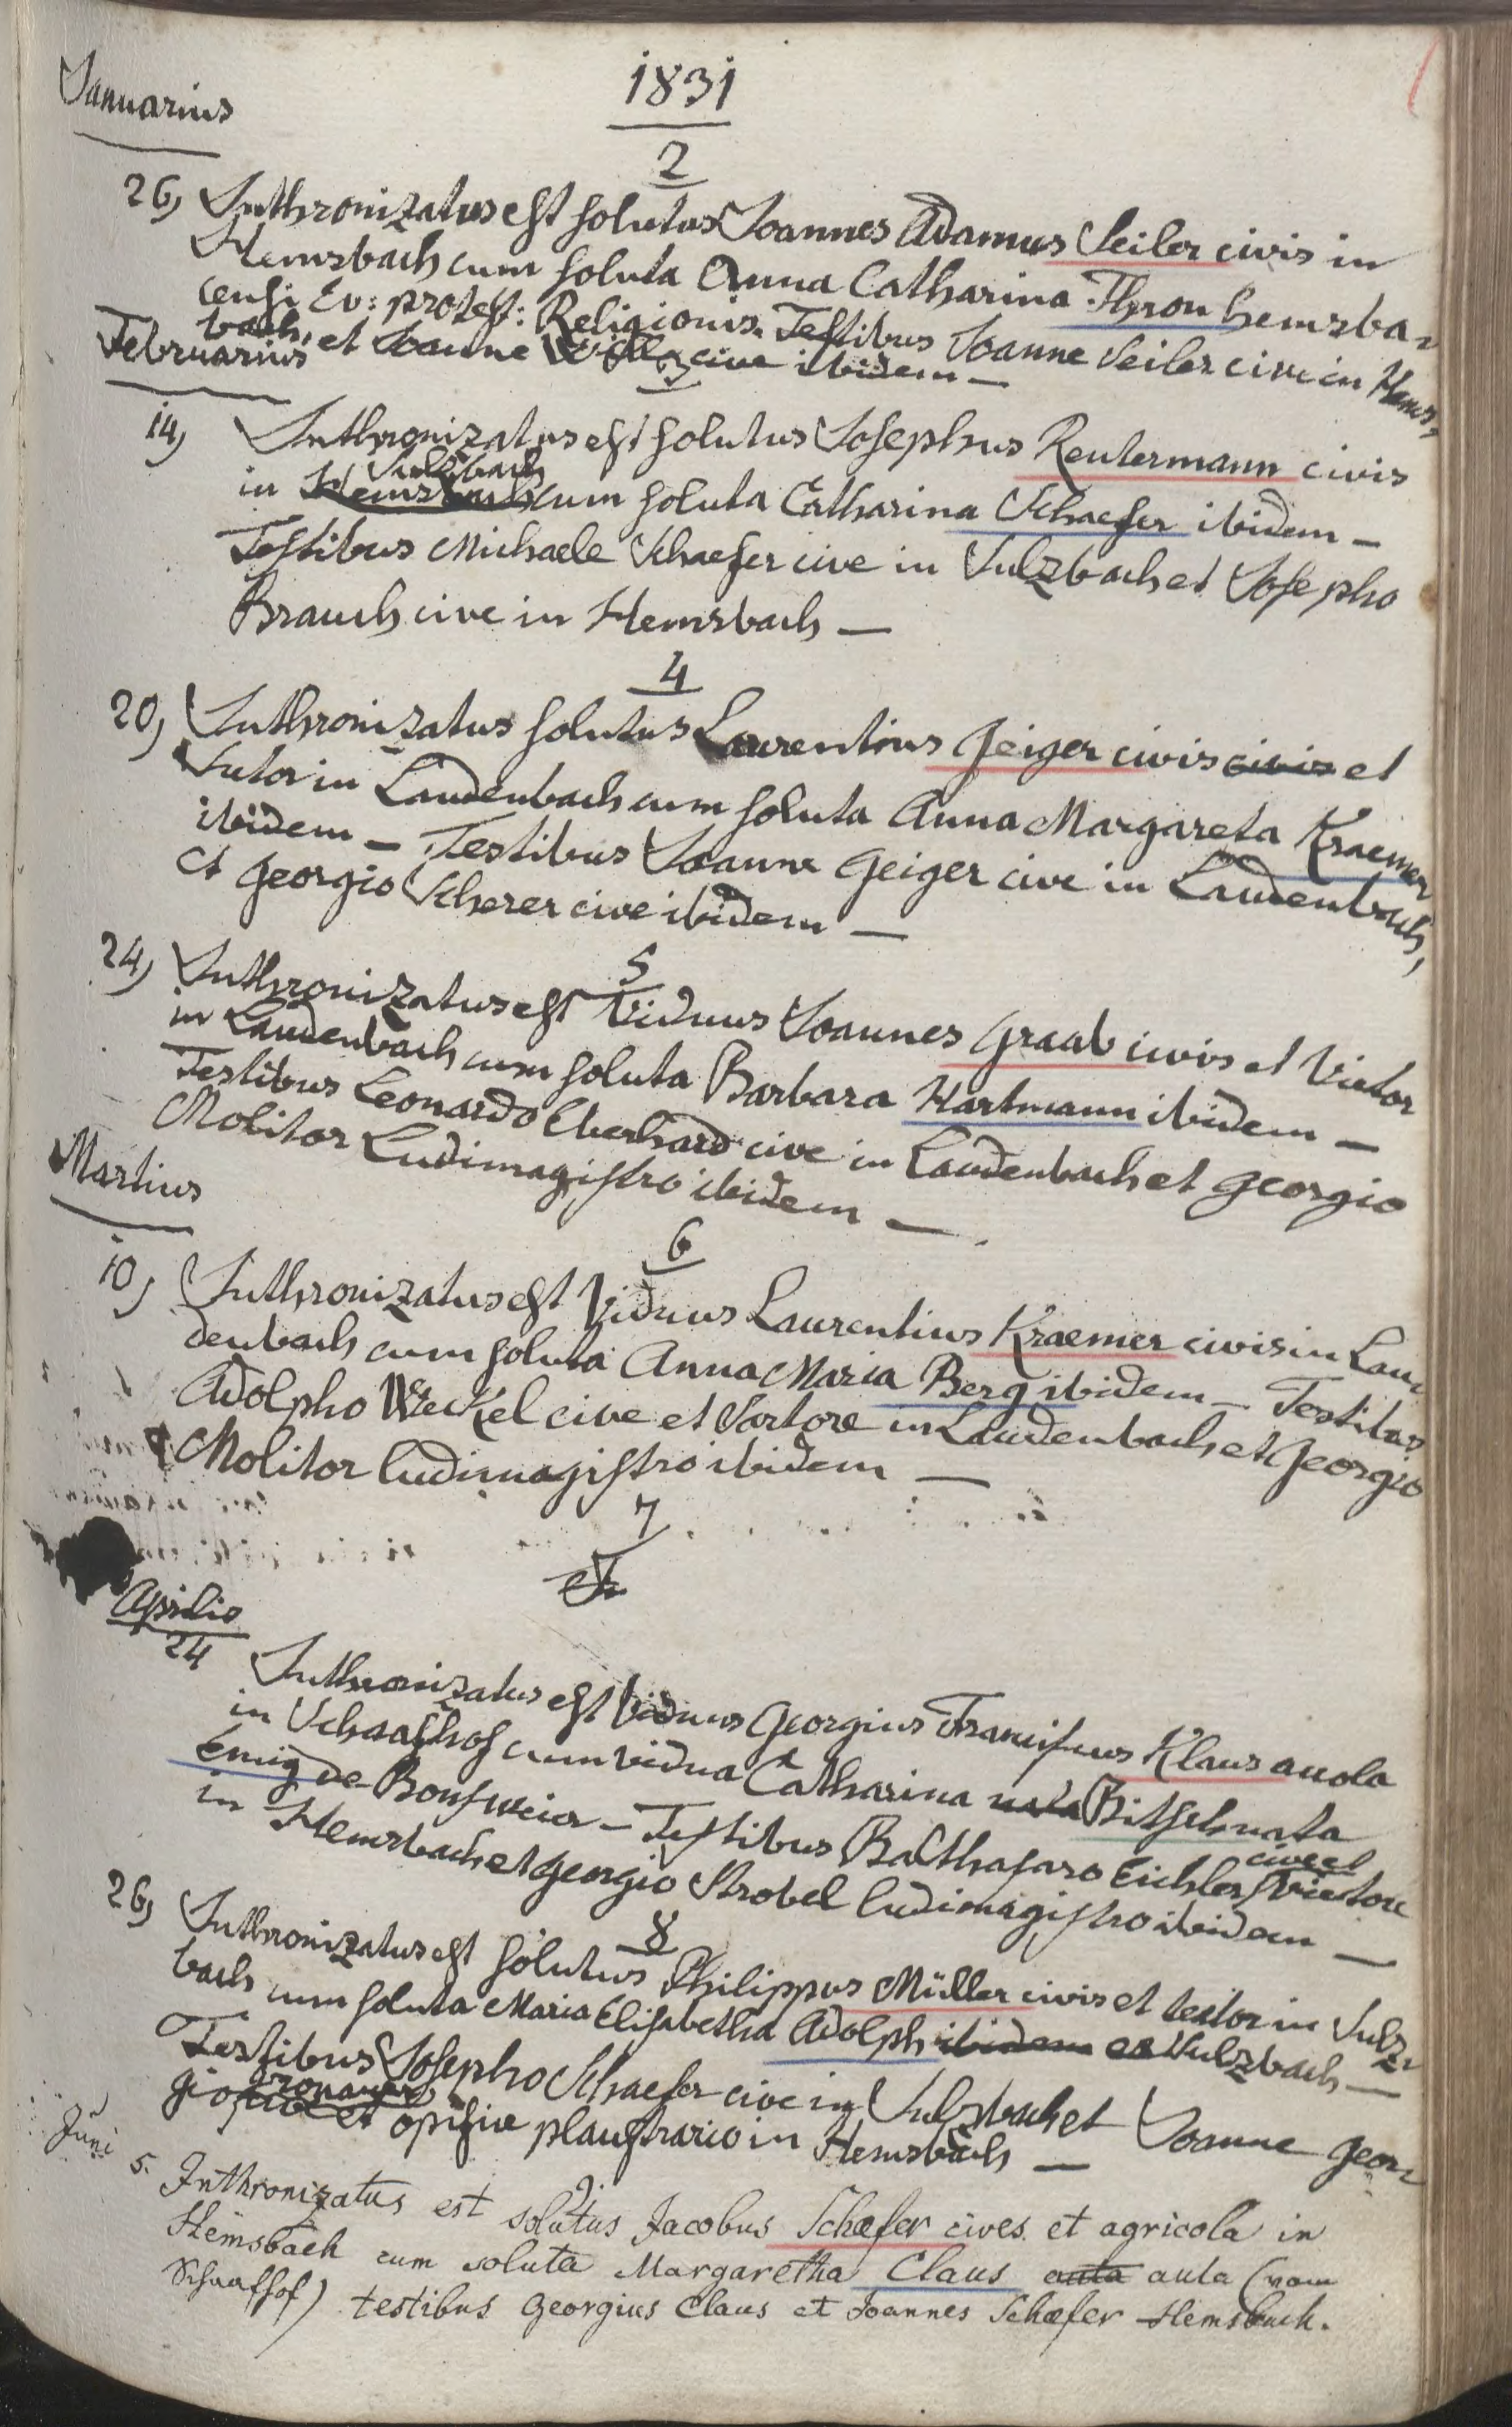 Januarius
1831
2
26, Inthronizatus est solutus Joannes Adamus Seiler civis in
Hemsbach cum soluta Anna Catharina Thron hemsba-
censi Ev: protest: Religionis. Testibus Joanne Seiler cive in Hems,
bach, et Joanne cive ibidem —
Februarius
3
14, Inthronizatus est solutus Josephus Reutermann civis
Sulzbach
in Hemsbach cum soluta Catharina Schaefer ibidem —
Testibus Michaele Schaefer cive in Sulzbach et Josepho
Brauch cive in Hemsbach —
4
20, Inthronizatus solutus Laurentius Geiger civis civis et
Sutor in Laudenbach cum soluta Anna Margareta Kraemer
ibidem — Testibus Joanne Geiger cive in Laudenbach,
et Georgio Scherer cive ibidem —
5
24, Inthronizatus est Viduus Joannes Graab civis et Vietor
in Laudenbach cum soluta Barbara Hartmann ibidem —
Testibus Leonardo Eberhard cive in Laudenbach et Georgio
Molitor Ludimagistro ibidem —
Martius
6
10, Inthronizatus est Viduus Laurentius Kraemer civis in Lau,
denbach cum soluta Anna Maria Berg ibidem — Testibus
Adolpho Weckel cive et Sartore in Laudenbach et Georgio
Molitor ludimagistro ibidem —
7
Aprilis
24 Inthronizatus est Viduus Georgius Franciscus Klaus accola
in Schaafhof cum vidua Catharina nata Bitsch nata
Emig de Bonsweier — Testibus Balthasaro Eichler Vietore
cive et
in Hemsbach et Georgio Strobel ludimagistro ibidem —
8
26, Inthronizatus est solutus Philippus Müller civis et textor in Sulz,
bach cum soluta Maria Elisabetha Adolph ibidem ex Sulzbach —
Testibus Josepho Schaefer cive in Sulzbach et Joanne Geor,
gio cive et opifice plaustrario in Hemsbach —
Juni
5. Inthronizatus est solutus Jacobus Schæfer cives et agricola in
Hemsbach cum soluta Margaretha Claus auta aula (vom
Schaafhof) testibus Georgius Claus et Joannes Schæfer Hemsbach.